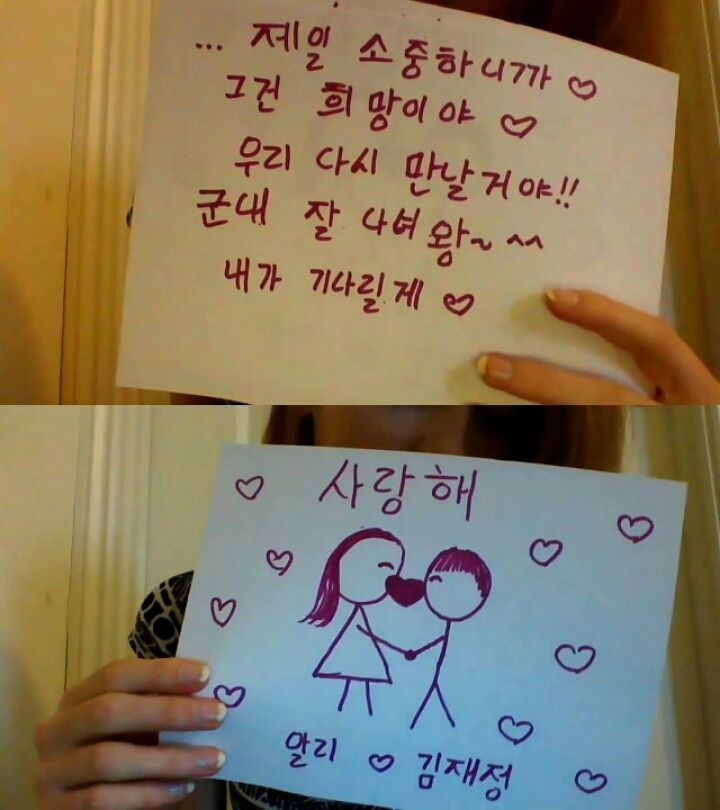 ... 제일 소중하니까 ♡
그건 희망이야 ♡
우리 다시 만날거야!!
군대 잘 다녀왕~ ^^
내가 기다릴게 ♡
사랑해
알리 ♡ 김재정